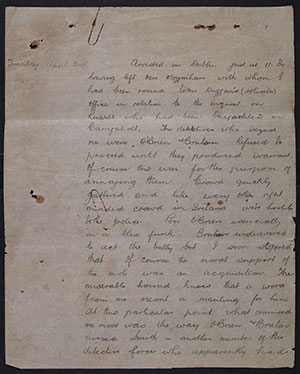 Tuesday April 3rd. Arrested in Dublin just at 11.30
having left Mrs Moynihan with whom I
had been round to Mr Duggan's (solicitor)
office in relation to the inquest on
Russell who had been bayonetted in
Carrigaholt. The detectives who seized
me were O'Brien & Bruton. Refused to
proceed until they produced warrant
Of course this was for the purpose of
annoying them. Crowd quickly
gathered and like every other right
minded crowd in Ireland was hostile
to the police. Both O'Brien especially
in a blue funk. Bruton endeavoured
to act the bully but I soon stopped
that. Of course the moral support of
the mob was an acquisition. The
miserable hound knew that a word
from me meant a mauling for him
At this particular point what amused
me most was the way O'Brien & Bruton
cursed Smith - another member of the
detective force who apparently had